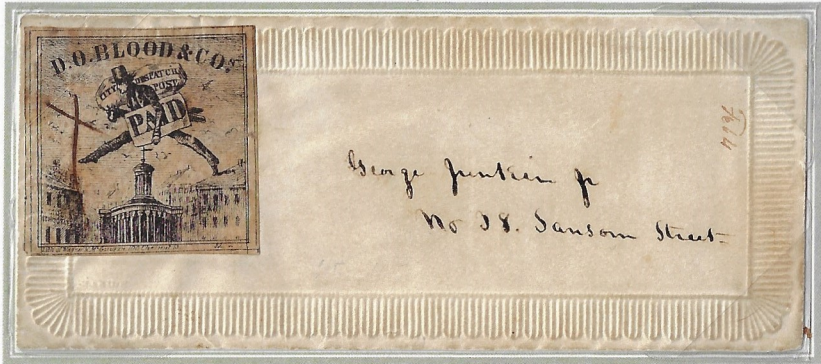 D.O.BLOOD & Co's
CITY DESPATCH
POST
PAID
George Junkin Jr
No 38. Sansom Street